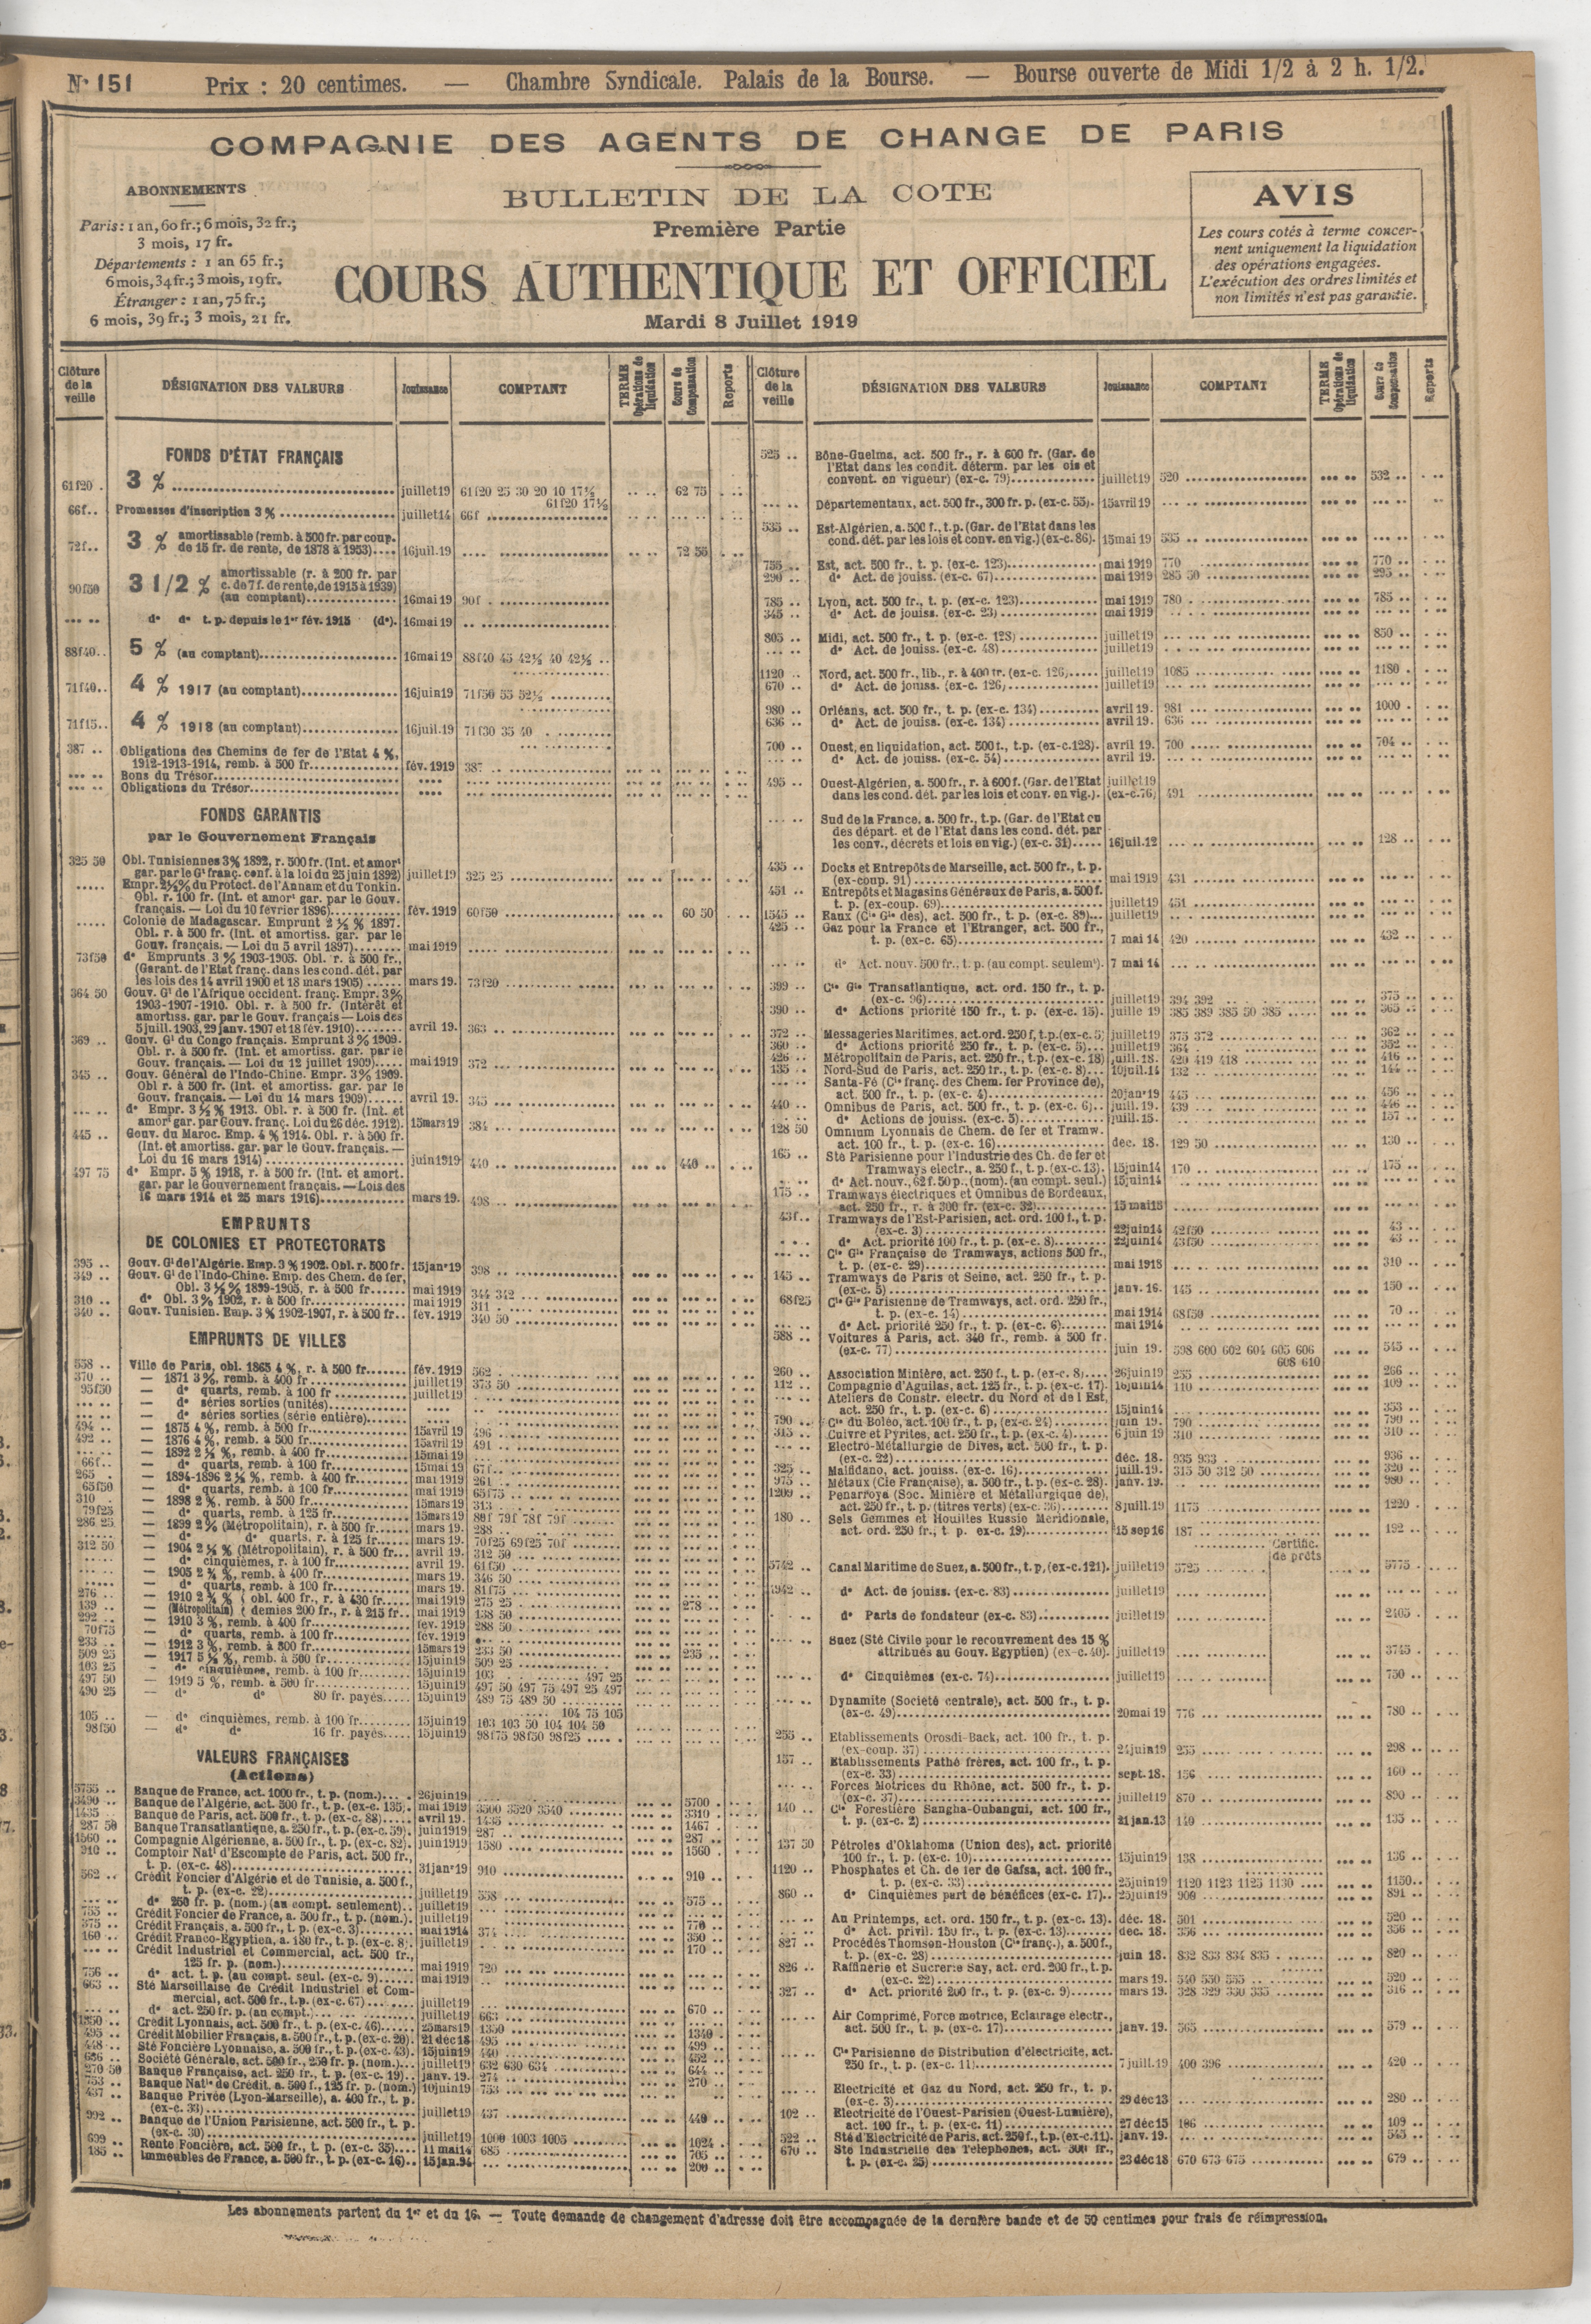 Nº 151 Prix : 20 centimes. — Chambre Syndicale. Palais de la Bourse. — Bourse ouverte de Midi 1/2 à 2 h. 1/2.
COMPAGNIE DES AGENTS DE CHANGE DE PARIS
ABONNEMENTS
Paris : 1 an, 60 fr.; 6 mois, 32 fr.;
3 mois, 17 fr.
Départements : 1 an 65 fr.;
6 mois, 34 fr.; 3 mois, 19 fr.
Étranger : 1 an, 75 fr.;
6 mois, 39 fr.; 3 mois, 21 fr.
BULLETIN DE LA COTE
Première Partie
COURS AUTHENTIQUE ET OFFICIEL
Mardi 8 Juillet 1919
AVIS
Les cours cotés à terme concer-
nent uniquement la liquidation
des opérations engagées.
L'exécution des ordres limités et
non limités n'est pas garantie.
Clôture de la veille DÉSIGNATION DES VALEURS Jouissance COMPTANT TERME Opérations de liquidation Cours de Compensation Reports
FONDS D'ÉTAT FRANÇAIS
61f20 3 % juillet19 61f20 25 30 20 10 17½ 62 75
61f20 17½
66f.. Promesses d'inscription 3 % juillet14 66f
72f.. 3 % amortissable (remb. à 500 fr. par coup.
de 15 fr. de rente, de 1878 à 1953) 16juil.19 72 55
90f50 3 1/2 % amortissable (r. à 200 fr. par
c. de 7 f. de rente, de 1915 à 1939)
(au comptant) 16mai19 90f
d° d° t. p. depuis le 1er fév. 1915 (d°). 16mai19
88f40 5 % (au comptant) 16mai19 88f40 45 42½ 40 42½
71f40 4 % 1917 (au comptant) 16juin19 71f50 55 52½
71f15 4 % 1918 (au comptant) 16juil.19 71f30 35 40
387 Obligations des Chemins de fer de l'Etat 4 %,
1912-1913-1914, remb. à 500 fr. fév.1919 387
Bons du Trésor
Obligations du Trésor
FONDS GARANTIS
par le Gouvernement Français
325 50 Obl. Tunisiennes 3% 1892, r. 500 fr. (Int. et amort
gar. par le Gt franç. conf. à la loi du 25 juin 1892) juillet19 325 25
Empr. 2½% du Protect. de l'Annam et du Tonkin.
Obl. r. 100 fr. (Int. et amort gar. par le Gouv.
français. — Loi du 10 février 1896) fév. 1919 60f50 60 50
Colonie de Madagascar. Emprunt 2 ½ % 1897.
Obl. r. à 500 fr. (Int. et amortiss. gar. par le
Gouv. français. — Loi du 5 avril 1897) mai1919
73f50 d° Emprunts 3 % 1903-1905. Obl. r. à 500 fr.,
(Garant. de l'Etat franç. dans les cond. dét. par
les lois des 14 avril 1900 et 18 mars 1905) mars 19. 73f20
364 50 Gouv. Gl de l'Afrique occident. franç. Empr. 3%
1903-1907-1910. Obl. r. à 500 fr. (Intérêt et
amortiss. gar. par le Gouv. français — Lois des
5 juill. 1903, 29 janv. 1907 et 18 fév. 1910) avril 19. 363
369 Gouv. Gl du Congo français. Emprunt 3 % 1909.
Obl. r. à 500 fr. (Int. et amortiss. gar. par le
Gouv. français. — Loi du 12 juillet 1909) mai1919 372
345 Gouv. Général de l'Indo-Chine. Empr. 3% 1909.
Obl r. à 500 fr. (Int. et amortiss. gar. par le
Gouv. français. — Loi du 14 mars 1909) avril 19. 345
d° Empr. 3 ½ % 1913. Obl. r. à 500 fr. (Int. et
amort gar. par Gouv. franç. Loi du 26 déc. 1912). 15mars19 384
445 Gouv. du Maroc. Emp. 4 % 1914. Obl. r. à 500 fr.
(Int. et amortiss. gar. par le Gouv. français. —
Loi du 16 mars 1914) juin1919 440 440
497 75 d° Empr. 5 % 1918, r. à 500 fr. (Int. et amort.
gar. par le Gouvernement français. — Lois des
16 mars 1914 et 25 mars 1916) mars 19. 498
EMPRUNTS
DE COLONIES ET PROTECTORATS
395 Gouv. Gl de l'Algérie. Emp. 3 % 1902. Obl. r. 500 fr. 15janr19 398
349 Gouv. Gl de l'Indo-Chine. Emp. des Chem. de fer,
Obl. 3 ½ % 1899-1905, r. à 500 fr. mai1919 344 342
310 d° Obl. 3 % 1902, r. à 500 fr. mai1919 311
340 Gouv. Tunisien. Emp. 3 % 1902-1907, r. à 500 fr. fév. 1919 340 50
EMPRUNTS DE VILLES
558 Ville de Paris, obl. 1865 4 %, r. à 500 fr. fév. 1919 562
370 — 1871 3 %, remb. à 400 fr. juillet19 373 50
95f50 — d° quarts, remb. à 100 fr. juillet19
— d° séries sorties (unités)
— d° séries sorties (série entière)
494 — 1875 4 %, remb. à 500 fr. 15avril19 496
492 — 1876 4 %, remb. à 500 fr. 15avril19 491
— 1892 2 ½ %, remb. à 400 fr. 15mai19
66f — d° quarts, remb. à 100 fr. 15mai19 67f
265 — 1894-1896 2 ½ %, remb. à 400 fr. mai 1919 261
65f50 — d° quarts, remb. à 100 fr. mai 1919 65f75
310 — 1898 2 %, remb. à 500 fr. 15mars19 313
79f25 — d° quarts, remb. à 125 fr. 15mars19 80f 79f 78f 79f
286 25 — 1899 2 % (Métropolitain), r. à 500 fr. mars 19. 288
— d° d° quarts, r. à 125 fr. mars 19. 70f25 69f25 70f
312 50 — 1904 2 ½ % (Métropolitain), r. à 500 fr. avril 19. 312 50
— d° cinquièmes, r. à 100 fr. avril 19. 61f50
— 1905 2 ¾ %, remb. à 400 fr. mars 19. 346 50
— d° quarts, remb. à 100 fr. mars 19. 81f75
276 — 1910 2 ¾ % obl. 400 fr., r. à 430 fr. mai1919 275 25 278
139 — (Métropolitain) demies 200 fr., r. à 215 fr. mai 1919 138 50
292 — 1910 3 %, remb. à 400 fr. fév. 1919 288 50
70f75 — d° quarts, remb. à 100 fr. fév. 1919
233 — 1912 3 %, remb. à 300 fr. 15mars19 233 50 235
509 25 — 1917 5 ½ %, remb. à 500 fr. 15juin19 509 25
103 25 — d° cinquièmes, remb. à 100 fr. 15juin19 103 497 25
497 50 — 1919 5 %, remb. à 500 fr. 15juin19 497 50 497 75 497 25 497
490 25 — d° d° 80 fr. payés 15juin19 489 75 489 50
104 75 105
105 — d° cinquièmes, remb. à 100 fr. 15juin19 103 103 50 104 104 50
98f50 — d° d° 16 fr. payés 15juin19 98f75 98f50 98f25
VALEURS FRANÇAISES
(Actions)
5755 Banque de France, act. 1000 fr., t. p. (nom.) 26juin19 5700
3490 Banque de l'Algérie, act. 500 fr., t. p. (ex-c. 135) mai 1919 3500 3520 3540 3310
1435 Banque de Paris, act. 500 fr., t. p. (ex-c. 88) avril 19. 1435 1467
287 50 Banque Transatlantique, a. 250 fr., t. p. (ex-c. 59) juin1919 287 287
1560 Compagnie Algérienne, a. 500 fr., t. p. (ex-c. 82) juin1919 1580 1560
910 Comptoir Natl d'Escompte de Paris, act. 500 fr.,
t. p. (ex-c. 48) 31janr19 910 910
562 Crédit Foncier d'Algérie et de Tunisie, a. 500 f.,
t. p. (ex-c. 22) juillet19 558 575
d° 250 fr. p. (nom.) (au compt. seulement) juillet19
755 Crédit Foncier de France, a. 500 fr., t. p. (nom.) juillet19 770
375 Crédit Français, a. 500 fr., t. p. (ex-c. 3) mai1914 374 350
160 Crédit Franco-Egyptien, a. 180 fr., t. p. (ex-c. 8) juillet19 170
Crédit Industriel et Commercial, act. 500 fr.,
125 fr. p. (nom.) mai1919 720
756 d° act. t. p. (au compt. seul. (ex-c. 9) mai1919
663 Sté Marseillaise de Crédit Industriel et Com-
mercial, act. 500 fr., t.p. (ex-c. 67) juillet19 670
d° act. 250 fr. p. (au compt.) juillet19 663
1350 Crédit Lyonnais, act. 500 fr., t. p. (ex-c. 46) 25mars19 1350 1340
495 Crédit Mobilier Français, a. 500 fr., t. p. (ex-c. 20) 21déc18 495 499
448 Sté Foncière Lyonnaise, a. 500 fr., t. p. (ex-c. 43) 15juin19 440 452
636 Société Générale, act. 500 fr., 250 fr. p. (nom.) juillet19 632 630 634 644
270 50 Banque Française, act. 250 fr., t. p. (ex-c. 19) janv. 19. 274 270
753 Banque Natle de Crédit, a. 500 f., 125 fr. p. (nom.) 10juin19 753
437 Banque Privée (Lyon-Marseille), a. 400 fr., t. p.
(ex-c. 33) juillet19 437 440
992 Banque de l'Union Parisienne, act. 500 fr., t. p.
(ex-c. 30) juillet19 1000 1003 1005 1024
699 Rente Foncière, act. 500 fr., t. p. (ex-c. 35) 11mai14 685 705
185 Immeubles de France, a. 500 fr., t. p. (ex-c. 16) 15jan.94 200
Clôture de la veille DÉSIGNATION DES VALEURS Jouissance COMPTANT TERME Opérations de liquidation Cours de Compensation Reports
525 Bône-Guelma, act. 500 fr., r. à 600 fr. (Gar. de
l'Etat dans les condit. déterm. par les ois et
convent. en vigueur) (ex-c. 79) juillet19 520 532
Départementaux, act. 500 fr., 300 fr. p. (ex-c. 55). 15avril19
535 Est-Algérien, a. 500 f., t.p. (Gar. de l'Etat dans les
cond. dét. par les lois et conv. en vig.) (ex-c. 86). 15mai19 535
755 Est, act. 500 fr., t. p. (ex-c. 123) mai 1919 770 770
290 d° Act. de jouiss. (ex-c. 67) mai1919 285 50 295
785 Lyon, act. 500 fr., t. p. (ex-c. 123) mai 1919 780 785
345 d° Act. de jouiss. (ex-c. 23) mai1919
805 Midi, act. 500 fr., t. p. (ex-c. 128) juillet19 850
d° Act. de jouiss. (ex-c. 48) juillet19
1120 Nord, act. 500 fr., lib., r. à 400 fr. (ex-c. 126) juillet19 1085 1180
670 d° Act. de jouiss. (ex-c. 126) juillet19
980 Orléans, act. 500 fr., t. p. (ex-c. 134) avril 19. 981 1000
636 d° Act. de jouiss. (ex-c. 134) avril 19. 636
700 Ouest, en liquidation, act. 500 f., t.p. (ex-c. 128). avril 19. 700 704
d° Act. de jouiss. (ex-c. 54) avril 19.
495 Ouest-Algérien, a. 500 fr., r. à 600 f. (Gar. de l'Etat juillet19
dans les cond. dét. par les lois et conv. en vig.). (ex-c.76) 491
Sud de la France, a. 500 fr., t.p. (Gar. de l'Etat ou
des départ. et de l'Etat dans les cond. dét. par
les conv., décrets et lois en vig.) (ex-c. 31) 16juil.12 128
435 Docks et Entrepôts de Marseille, act. 500 fr., t. p.
(ex-coup. 91) mai 1919 431
451 Entrepôts et Magasins Généraux de Paris, a. 500 f.
t. p. (ex-coup. 69) juillet19 451
1545 Eaux (Cie Gle des), act. 500 fr., t. p. (ex-c. 89) juillet19
425 Gaz pour la France et l'Etranger, act. 500 fr.,
t. p. (ex-c. 65) 7 mai 14 420 432
d° Act. nouv. 500 fr., t. p. (au compt. seulemt). 7 mai 14
399 Cie Gle Transatlantique, act. ord. 150 fr., t. p.
(ex-c. 96) juillet19 394 392 375
390 d° Actions priorité 150 fr., t. p. (ex-c. 15). juille 19 385 389 385 50 385 365
372 Messageries Maritimes, act. ord. 250 f, t.p. (ex-c. 5) juillet19 375 372 362
360 d° Actions priorité 250 fr., t. p. (ex-c. 5) juillet19 364 352
426 Métropolitain de Paris, act. 250 fr., t.p. (ex-c. 18) juill.18. 420 419 418 416
135 Nord-Sud de Paris, act. 250 fr., t. p. (ex-c. 8) 10juil.14 132 144
Santa-Fé (Cie franç. des Chem. fer Province de),
act. 500 fr., t. p. (ex-c. 4) 20janr19 445 456
440 Omnibus de Paris, act. 500 fr., t. p. (ex-c. 6) juill. 19. 439 446
d° Actions de jouiss. (ex-c. 5) juill.15. 157
128 50 Omnium Lyonnais de Chem. de fer et Tramw.
act. 100 fr., t. p. (ex-c. 16) dec. 18. 129 50 130
165 Sté Parisienne pour l'Industrie des Ch. de fer et
Tramways electr., a. 250 f., t. p. (ex-c. 13). 15juin14 170 175
d° Act. nouv., 62 f. 50 p., (nom). (au compt. seul.) 15juin14
175 Tramways électriques et Omnibus de Bordeaux,
act. 250 fr., r. à 300 fr. (ex-c. 32) 15mai15
43f Tramways de l'Est-Parisien, act. ord. 100 f., t. p.
(ex-c. 3) 22juin14 42f50 43
d° Act. priorité 100 fr., t. p. (ex-c. 8) 22juin14 43f50 43
Cie Gle Française de Tramways, actions 500 fr.,
t. p. (ex-c. 29) mai 1918 310
145 Tramways de Paris et Seine, act. 250 fr., t. p.
(ex-c. 5) janv. 16. 145 150
68f25 Cie Gle Parisienne de Tramways, act. ord. 250 fr.,
t. p. (ex-c. 14) mai 1914 68f50 70
d° Act. priorité 250 fr., t. p. (ex-c. 6) mai 1914
588 Voitures à Paris, act. 340 fr., remb. à 500 fr.
(ex-c. 77) juin 19. 598 600 602 604 605 606 545
608 610
260 Association Minière, act. 250 f., t. p. (ex-c. 8) 26juin19 255 266
112 Compagnie d'Aguilas, act. 125 fr., t. p. (ex-c. 17) 16juin14 110 109
Ateliers de Constr. electr. du Nord et de l'Est,
act. 250 fr., t. p. (ex-c. 6) 15juin14 353
790 Cie du Boléo, act. 100 fr., t. p. (ex-c. 24) juin 19. 790 790
315 Cuivre et Pyrites, act. 250 fr., t. p. (ex-c. 4) 6 juin 19 310 310
Electro-Métallurgie de Dives, act. 500 fr., t. p.
(ex-c. 22) déc. 18. 935 933 936
325 Malfidano, act. jouiss. (ex-c. 16) juill.19. 315 50 312 50 320
975 Métaux (Cie Française), a. 500 fr., t. p. (ex-c. 28). janv. 19. 980
1209 Penarroya (Soc. Minière et Métallurgique de),
act. 250 fr., t. p. (titres verts) (ex-c. 36) 8juill.19 1175 1220
180 Sels Gemmes et Houilles Russie Méridionale,
act. ord. 250 fr., t. p. ex-c. 19) 15sep16 187 192
Certific.
de prêts
5742 Canal Maritime de Suez, a. 500 fr., t. p, (ex-c. 121). juillet19 5725 5775
4942 d° Act. de jouiss. (ex-c. 83) juillet19
d° Parts de fondateur (ex-c. 83) juillet19 2405
Suez (Sté Civile pour le recouvrement des 15 %
attribués au Gouv. Egyptien) (ex-c. 40). juillet19 3745
d° Cinquièmes (ex-c. 74) juillet19 750
Dynamite (Société centrale), act. 500 fr., t. p.
(ex-c. 49) 20mai 19 776 780
255 Etablissements Orosdi-Back, act. 100 fr., t. p.
(ex-coup. 37) 24juin19 255 298
157 Etablissements Pathé frères, act. 100 fr., t. p.
(ex-c. 33) sept.18. 156 160
Forces Motrices du Rhône, act. 500 fr., t. p.
(ex-c. 37) juillet19 870 890
140 Cie Forestière Sangha-Oubangui, act. 100 fr.,
t. p. (ex-c. 2) 21jan.13 140 135
137 50 Pétroles d'Oklahoma (Union des), act. priorité
100 fr., t. p. (ex-c. 10) 15juin19 138 136
1120 Phosphates et Ch. de fer de Gafsa, act. 100 fr.,
t. p. (ex-c. 33) 25juin19 1120 1123 1125 1130 1150
860 d° Cinquièmes part de bénéfices (ex-c. 17) 25juin19 900 891
Au Printemps, act. ord. 150 fr., t. p. (ex-c. 13). déc. 18. 501 520
d° Act. privil. 150 fr., t. p. (ex-c. 13) dec. 18. 356 356
827 Procédés Thomson-Houston (Cie franç.), a. 500 f.,
t. p. (ex-c. 28) juin 18. 832 833 834 835 820
826 Raffinerie et Sucrerie Say, act. ord. 200 fr., t. p.
(ex-c. 22) mars 19. 540 550 555 520
327 d° Act. priorité 200 fr., t. p. (ex-c. 9) mars 19. 328 329 330 335 316
Air Comprimé, Force motrice, Eclairage electr.,
act. 500 fr., t. p. (ex-c. 17) janv. 19. 565 579
Cie Parisienne de Distribution d'électricité, act.
250 fr., t. p. (ex-c. 11) 7juill.19 400 396 420
Electricité et Gaz du Nord, act. 250 fr., t. p.
(ex-c. 3) 29déc13 280
102 Electricité de l'Ouest-Parisien (Ouest-Lumière),
act. 100 fr., t. p. (ex-c. 11) 27déc15 106 109
522 Sté d'Electricité de Paris, act. 250 f., t.p. (ex-c. 11). janv. 19. 545
670 Sté Industrielle des Telephones, act. 300 fr.,
t. p. (ex-c. 25) 23déc18 670 673 675 679
Les abonnements partent du 1er et du 16. — Toute demande de changement d'adresse doit être accompagnée de la dernière bande et de 50 centimes pour frais de réimpression.